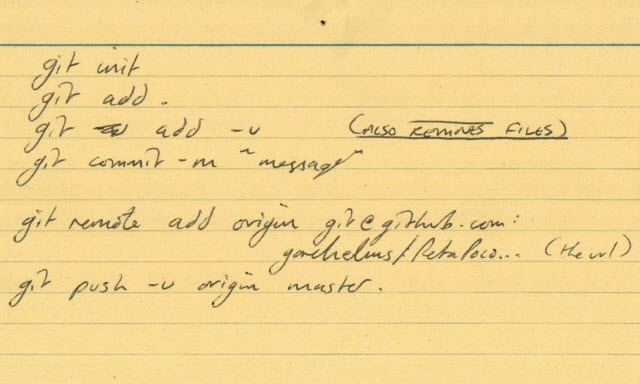 git init
git add .
git add -u (ALSO REMOVES FILES)
git commit -m "message"
git remote add origin git@github.com:
/PetaPoco... (the url)
git push -u origin master.